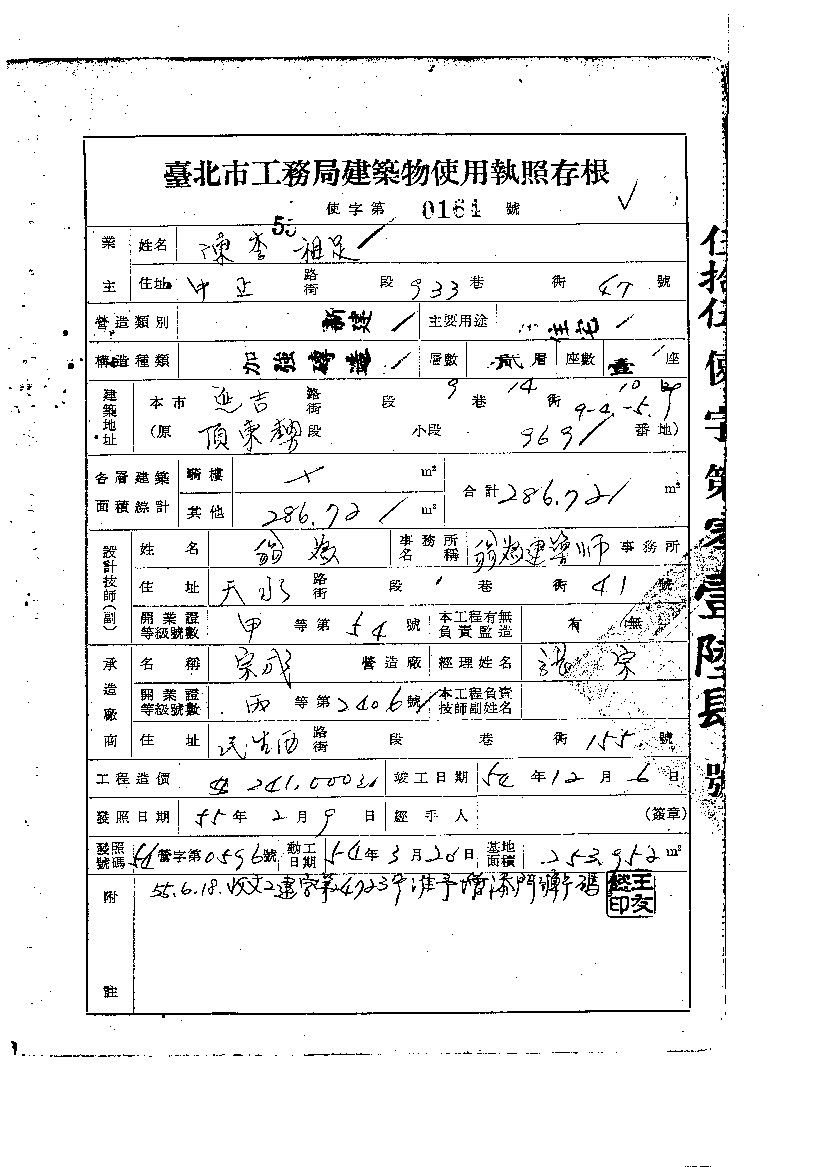 臺北市工務局建築物使用執照存根
55 使字第 0164 號
業主 姓名 陳李祖足
住址 中正 路街 段 933 巷 衖 47 號
營造類別 新建 主要用途 住宅
構造種類 加強磚造 層數 貳層 座數 壹座
建築地址 本市 延吉 路街 段 9 巷 14 衖 10 號
9-4,-5,
(原 頂東勢 段 小段 969 番地)
各層建築面積綜計 騎樓 × m² 合計 286.72 m²
其他 286.72 m²
設計技師(副) 姓名 事務所名稱 建築師 事務所
住址 天水 路街 段 巷 衖 41 號
開業證等級號數 甲 等第 54 號 本工程有無負責監造 有 無
承造廠商 名稱 宗成 營造廠 經理姓名 宗
開業證等級號數 丙 等第 2406 號 本工程負責技師副姓名
住址 民生西 路街 段 巷 衖 155 號
工程造價 241,000 竣工日期 54 年 12 月 6 日
發照日期 55 年 2 月 9 日 經手人 (簽章)
發照號碼 54 營字第 0596 號 動工日期 54 年 3 月 20 日 基地面積 253.952 m²
附註 55.6.18.收文建字第4723號准予增添門牌號碼
王友總印
伍拾伍使字第零壹陸肆號